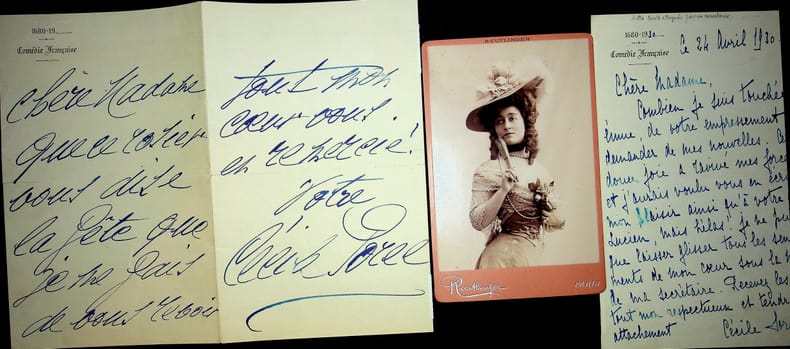 1680-19
Comédie Française
Chère Madame
que ce
vous dise
la fête que
je me fais
de vous revoir
tout mon
cœur vous
en remercie!
Votre
Cécile Sorel
REUTLINGER
Reutlinger
PARIS
1680-1930
Comédie Française
Ce 24 Avril 1930
Chère Madame,
Combien je suis touchée
émue, de votre empressement
demander de mes nouvelles. Ce
douce joie a ravivé mes force
et j'aurais voulu vous en écri
mon plaisir ainsi qu'à votre
Lucien, mais hélas! je ne pui
que laisser glisser tous les sen
ments de mon cœur sous la
de ma secrétaire. Recevez les
tout mon respectueux et tendr
attachement
Cécile Sor